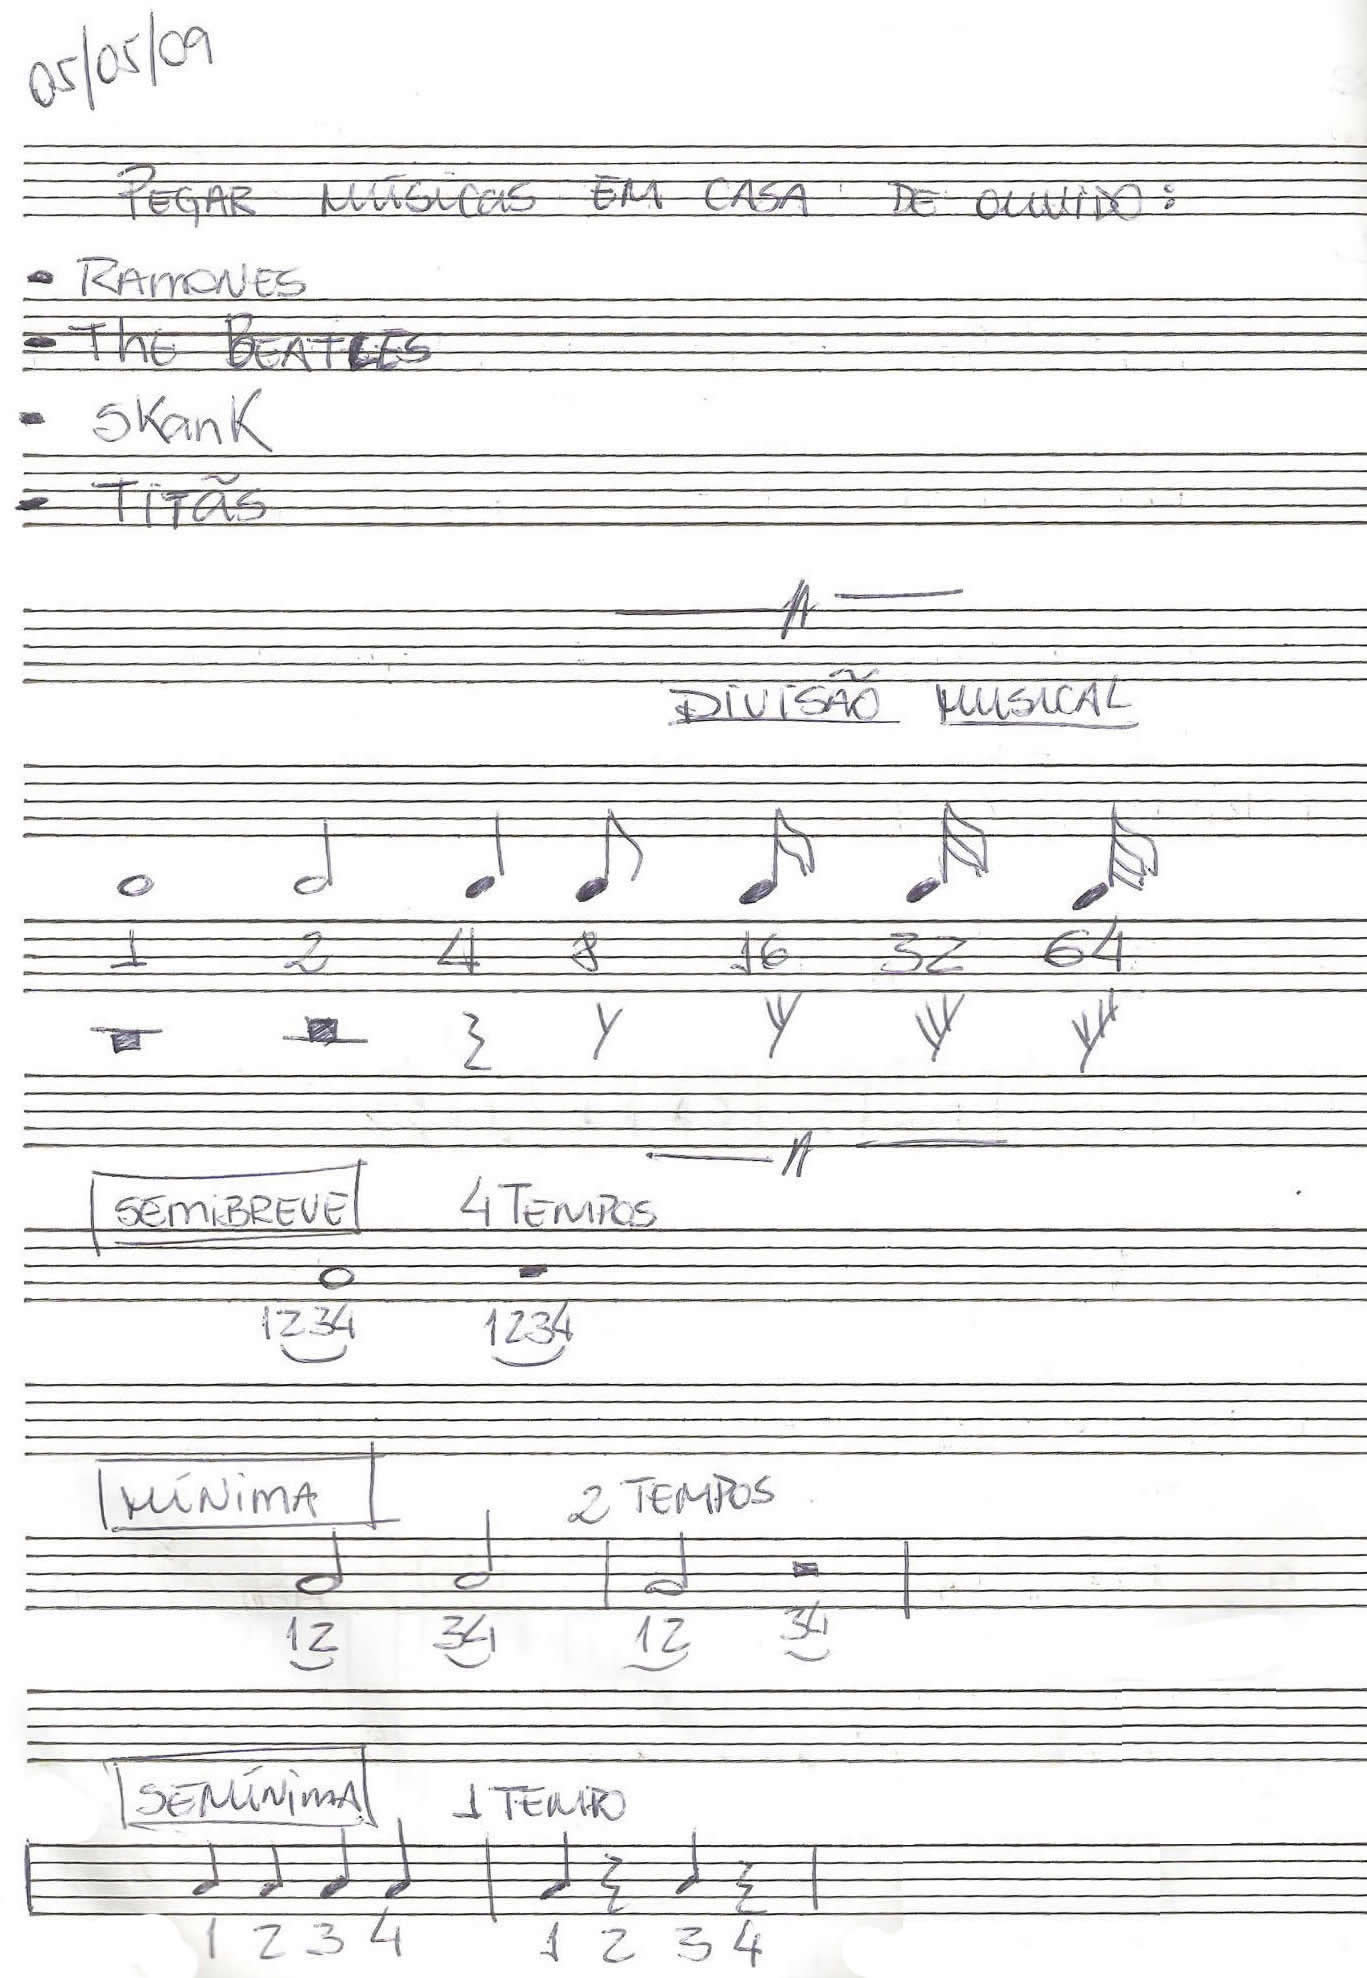 05/05/09
PEGAR MÚSICAS EM CASA DE OUVIDO:
- RAMONES
- The BEATLES
- SKanK
- TITÃS
DIVISÃO MUSICAL
1 2 4 8 16 32 64
SEMIBREVE 4 TEMPOS
1234 1234
MÍNIMA 2 TEMPOS
12 34 12 34
SEMÍNIMA 1 TEMPO
1 2 3 4 1 2 3 4